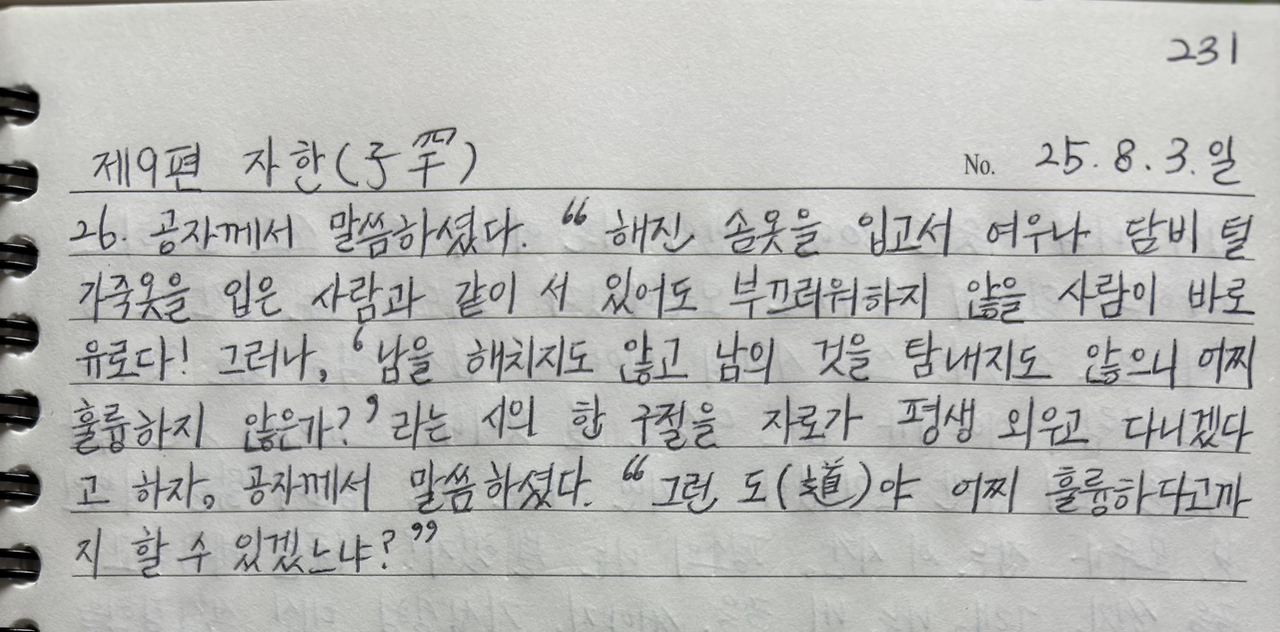 231
제9편 자한(子罕) No. 25. 8. 3. 일
26. 공자께서 말씀하셨다. “해진 솜옷을 입고서 여우나 담비 털
가죽옷을 입은 사람과 같이 서 있어도 부끄러워하지 않을 사람이 바로
유로다! 그러나, ‘남을 해치지도 않고 남의 것을 탐내지도 않으니 어찌
훌륭하지 않은가?’라는 시의 한 구절을 자로가 평생 외우고 다니겠다
고 하자, 공자께서 말씀하셨다. “그런 도(道)야 어찌 훌륭하다고까
지 할 수 있겠느냐?”